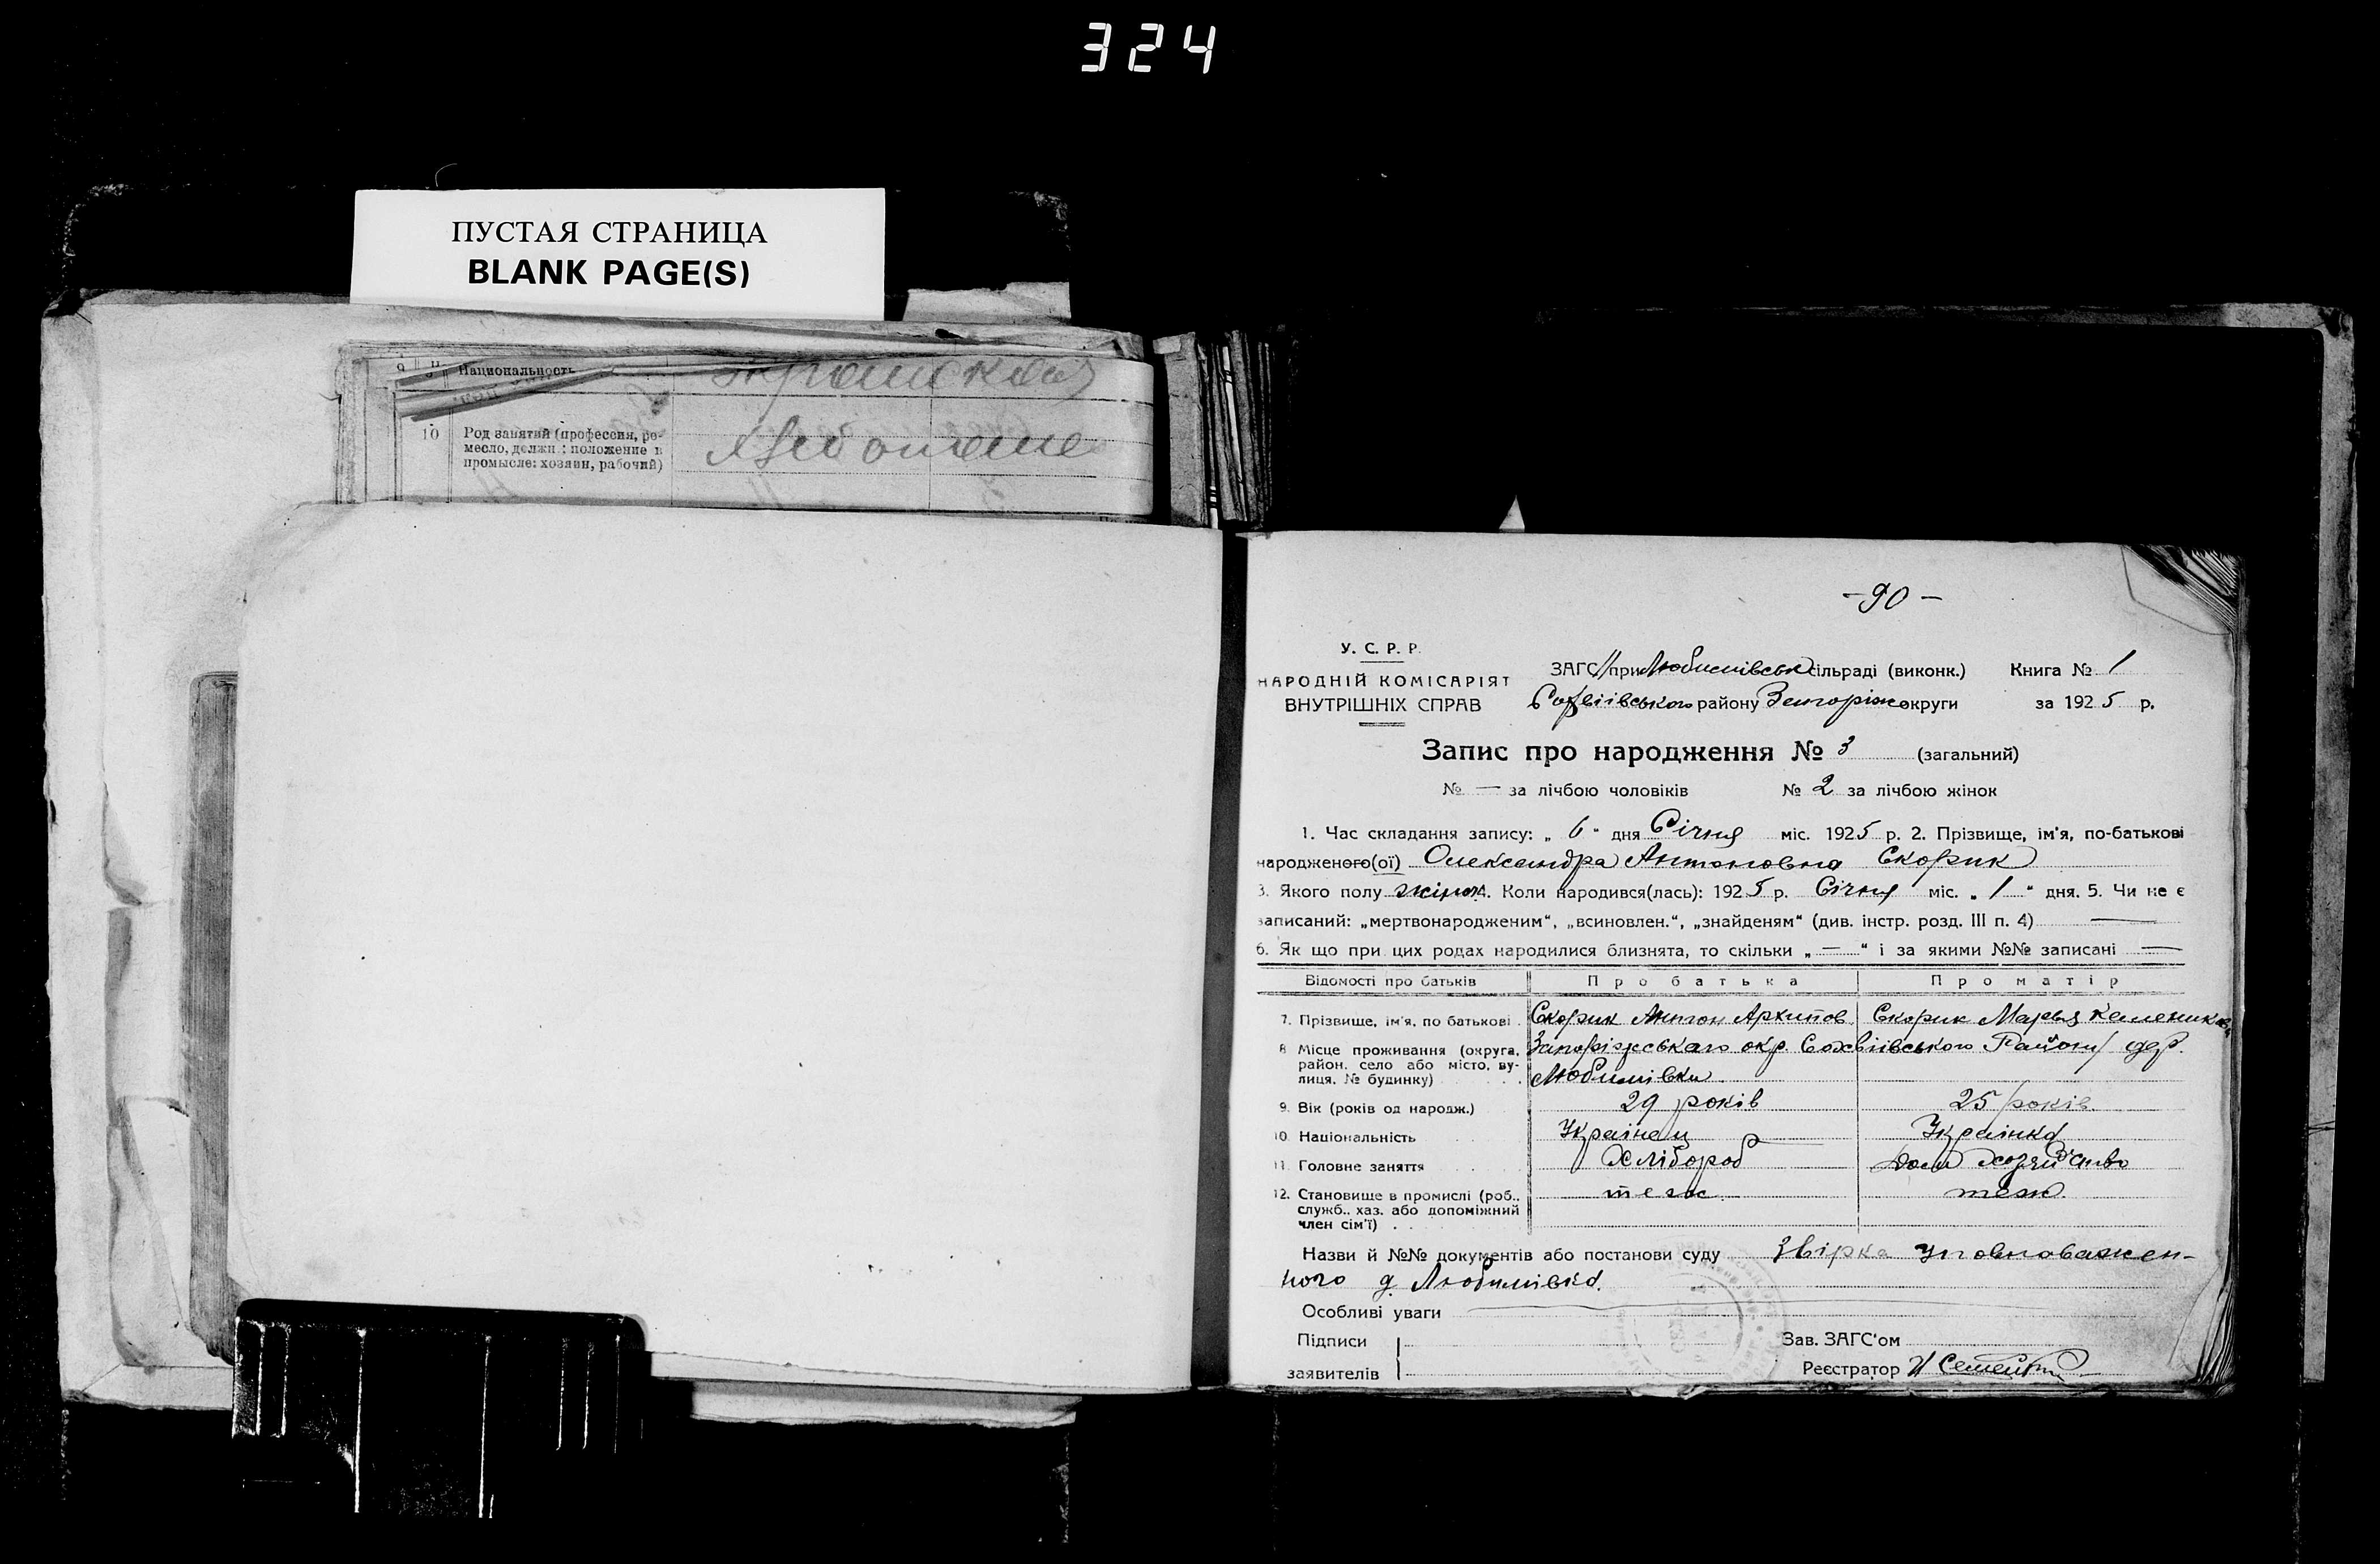 324
ПУСТАЯ СТРАНИЦА
BLANK PAGE(S)
Национальность
10 Род занятий (профессия, ре-
месло, должн.: положение в
промысле: хозяин, рабочий)
-90-
У. С. Р. Р.
НАРОДНІЙ КОМІСАРІЯТ
ВНУТРІШНІХ СПРАВ
ЗАГС при Любимівськ сільраді (виконк.) Книга № 1
Софіівського району Запоріж округи за 1925 р.
Запис про народження № 3 (загальний)
№ — за лічбою чоловіків № 2 за лічбою жінок
1. Час складання запису: „ 6 “ дня Січня міс. 1925 р. 2. Прізвище, ім'я, по-батькові
народженого(ої) Олександра Антоновна Скорик
3. Якого полу жіноч. 4. Коли народився(лась): 1925 р. Січня міс. „ 1 “ дня. 5. Чи не є
записаний: „мертвонародженим“, „всиновлен.“, „знайденям“ (див. інстр. розд. III п. 4) —
6. Як що при цих родах народилися близнята, то скільки „ — “ і за якими №№ записані —
Відомості про батьків Про батька Про матір
7. Прізвище, ім'я, по батькові Скорик Антон Архипов Скорик Марья
8 Місце проживання (округа, Запоріжського окр. Району дер.
район, село або місто, ву-
лиця, № будинку) Любимівки
9. Вік (років од народж.) 29 років 25 років
10. Національність Українец Українка
11. Головне заняття Хлібороб Дом хозяйство
12. Становище в промислі (роб., теж теж
служб., хаз. або допоміжний
член сім'ї)
Назви й №№ документів або постанови суду Звірка уповноважен-
ного д. Любимівка.
Особливі уваги
Підписи
заявителів
Зав. ЗАГС'ом
Реєстратор